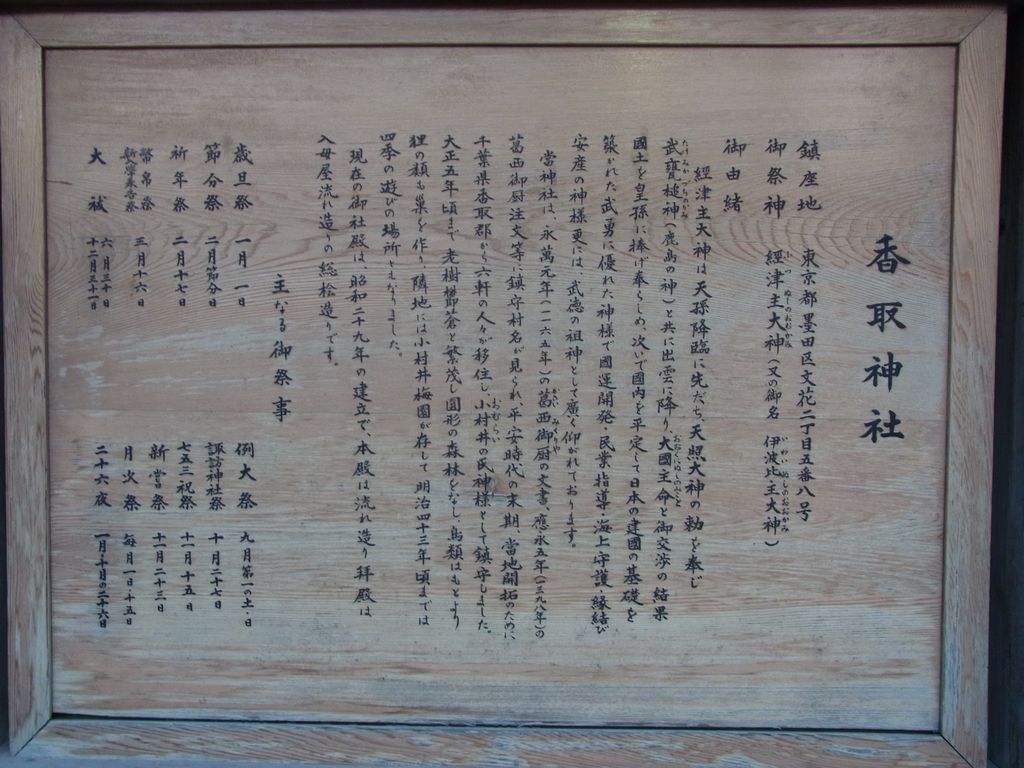 香取神社
鎮座地　東京都墨田区文花二丁目五番八号
御祭神　經津主大神（又の御名　伊波比主大神）
ふつぬしのおおかみ　いわいぬしのおおかみ
御由緒
經津主大神は天孫降臨に先だち、天照大神の勅を奉じ
武甕槌神（鹿島の神）と共に出雲に降り、大國主命と御交渉の結果
たけみかづちのかみ　おおくにぬしのみこと
國土を皇孫に捧げ奉らしめ、次いで國内を平定して日本の建國の基礎を
築かれた武勇に優れた神様で國運開発・民業指導・海上守護・縁結び
安産の神様更には、武徳の祖神として廣く仰がれております。
當神社は、永萬元年（一一六五年）の葛西御厨の文書、應永五年（一三九八年）の
かさいみくりや
葛西御厨注文等に鎮守村名が見られ、平安時代の末期、當地開拓のために
千葉県香取郡から六軒の人々が移住し、小村井の氏神様として鎮守しました。
おむらい
大正五年頃まで老樹欝蒼と繁茂し圓形の森林をなし、鳥類はもとより
狸の類も巣を作り、隣地には小村井梅園が存して明治四十三年頃までは
四季の遊びの場所ともなりました。
現在の御社殿は、昭和二十九年の建立で、本殿は流れ造り拝殿は
入母屋流れ造りの総桧造りです。
主なる御祭事
歳旦祭　一月一日
節分祭　二月節分日
祈年祭　二月十七日
幣帛祭
三月十六日
大祓　六月三十日
十二月三十一日
例大祭　九月第一の土・日
諏訪神社祭　十月二十七日
七五三祝祭　十一月十五日
新嘗祭　十一月二十三日
月次祭　毎月一日・十五日
二十六夜　一月・十月の二十六日